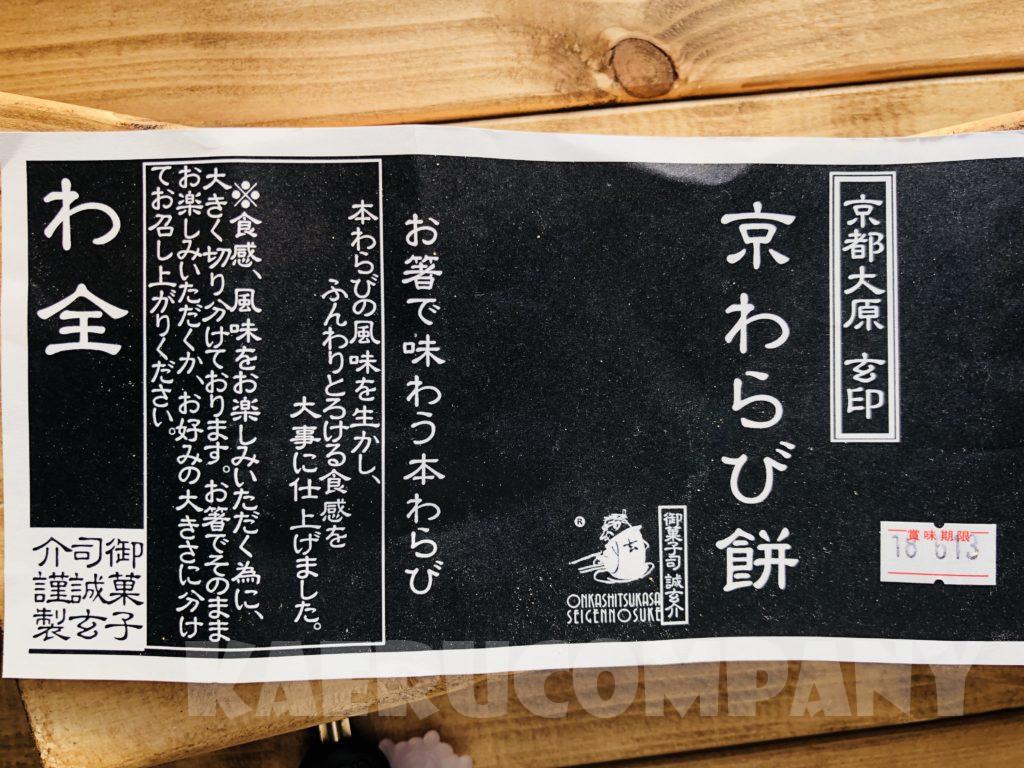 京都大原 玄印
賞味期限
18 6 13
京わらび餅
御菓子司 誠玄介
®
玄
ONKASHITSUKASA
SEIGENNOSUKE
お箸で味わう本わらび
本わらびの風味を生かし、
ふんわりとろける食感を
大事に仕上げました。
※食感、風味をお楽しみいただく為に、
大きく切り分けております。お箸でそのまま
お楽しみいただくか、お好みの大きさに分け
てお召し上がりください。
わ全
御菓子
司誠玄
介謹製
KAERUCOMPANY